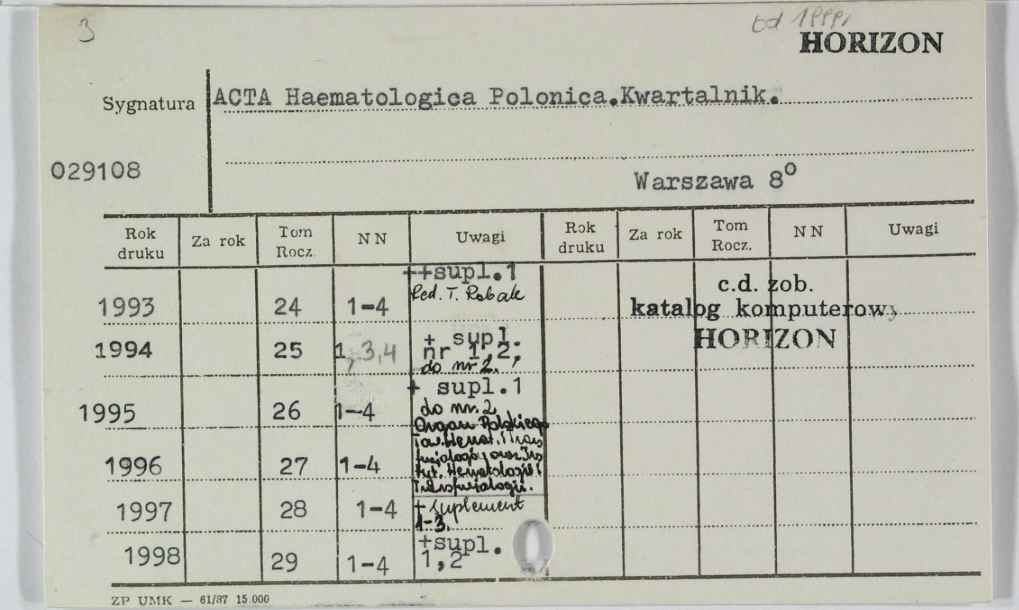 3
od 1999r
HORIZON
Sygnatura ACTA Haematologica Polonica.Kwartalnik.
029108
Warszawa 8°
Rok druku Za rok Tom Rocz. NN Uwagi Rok druku Za rok Tom Rocz. NN Uwagi
1993 24 1-4 ++supl.1
Red. T. Robak
c.d. zob.
katalog komputerowy
HORIZON
1994 25 1, 3,4 + supl.
nr 1,2,
do nr 2.
1995 26 1-4 + supl.1
do nr. 2
Organ Polskiego
Tow. Hemat. i Trans
fuzjologów oraz Ins
tyt. Hematologii i
Transfuzjologii.
1996 27 1-4
1997 28 1-4 + suplement
1-3.
1998 29 1-4 +supl.
1,2
ZP UMK — 61/87 15.000